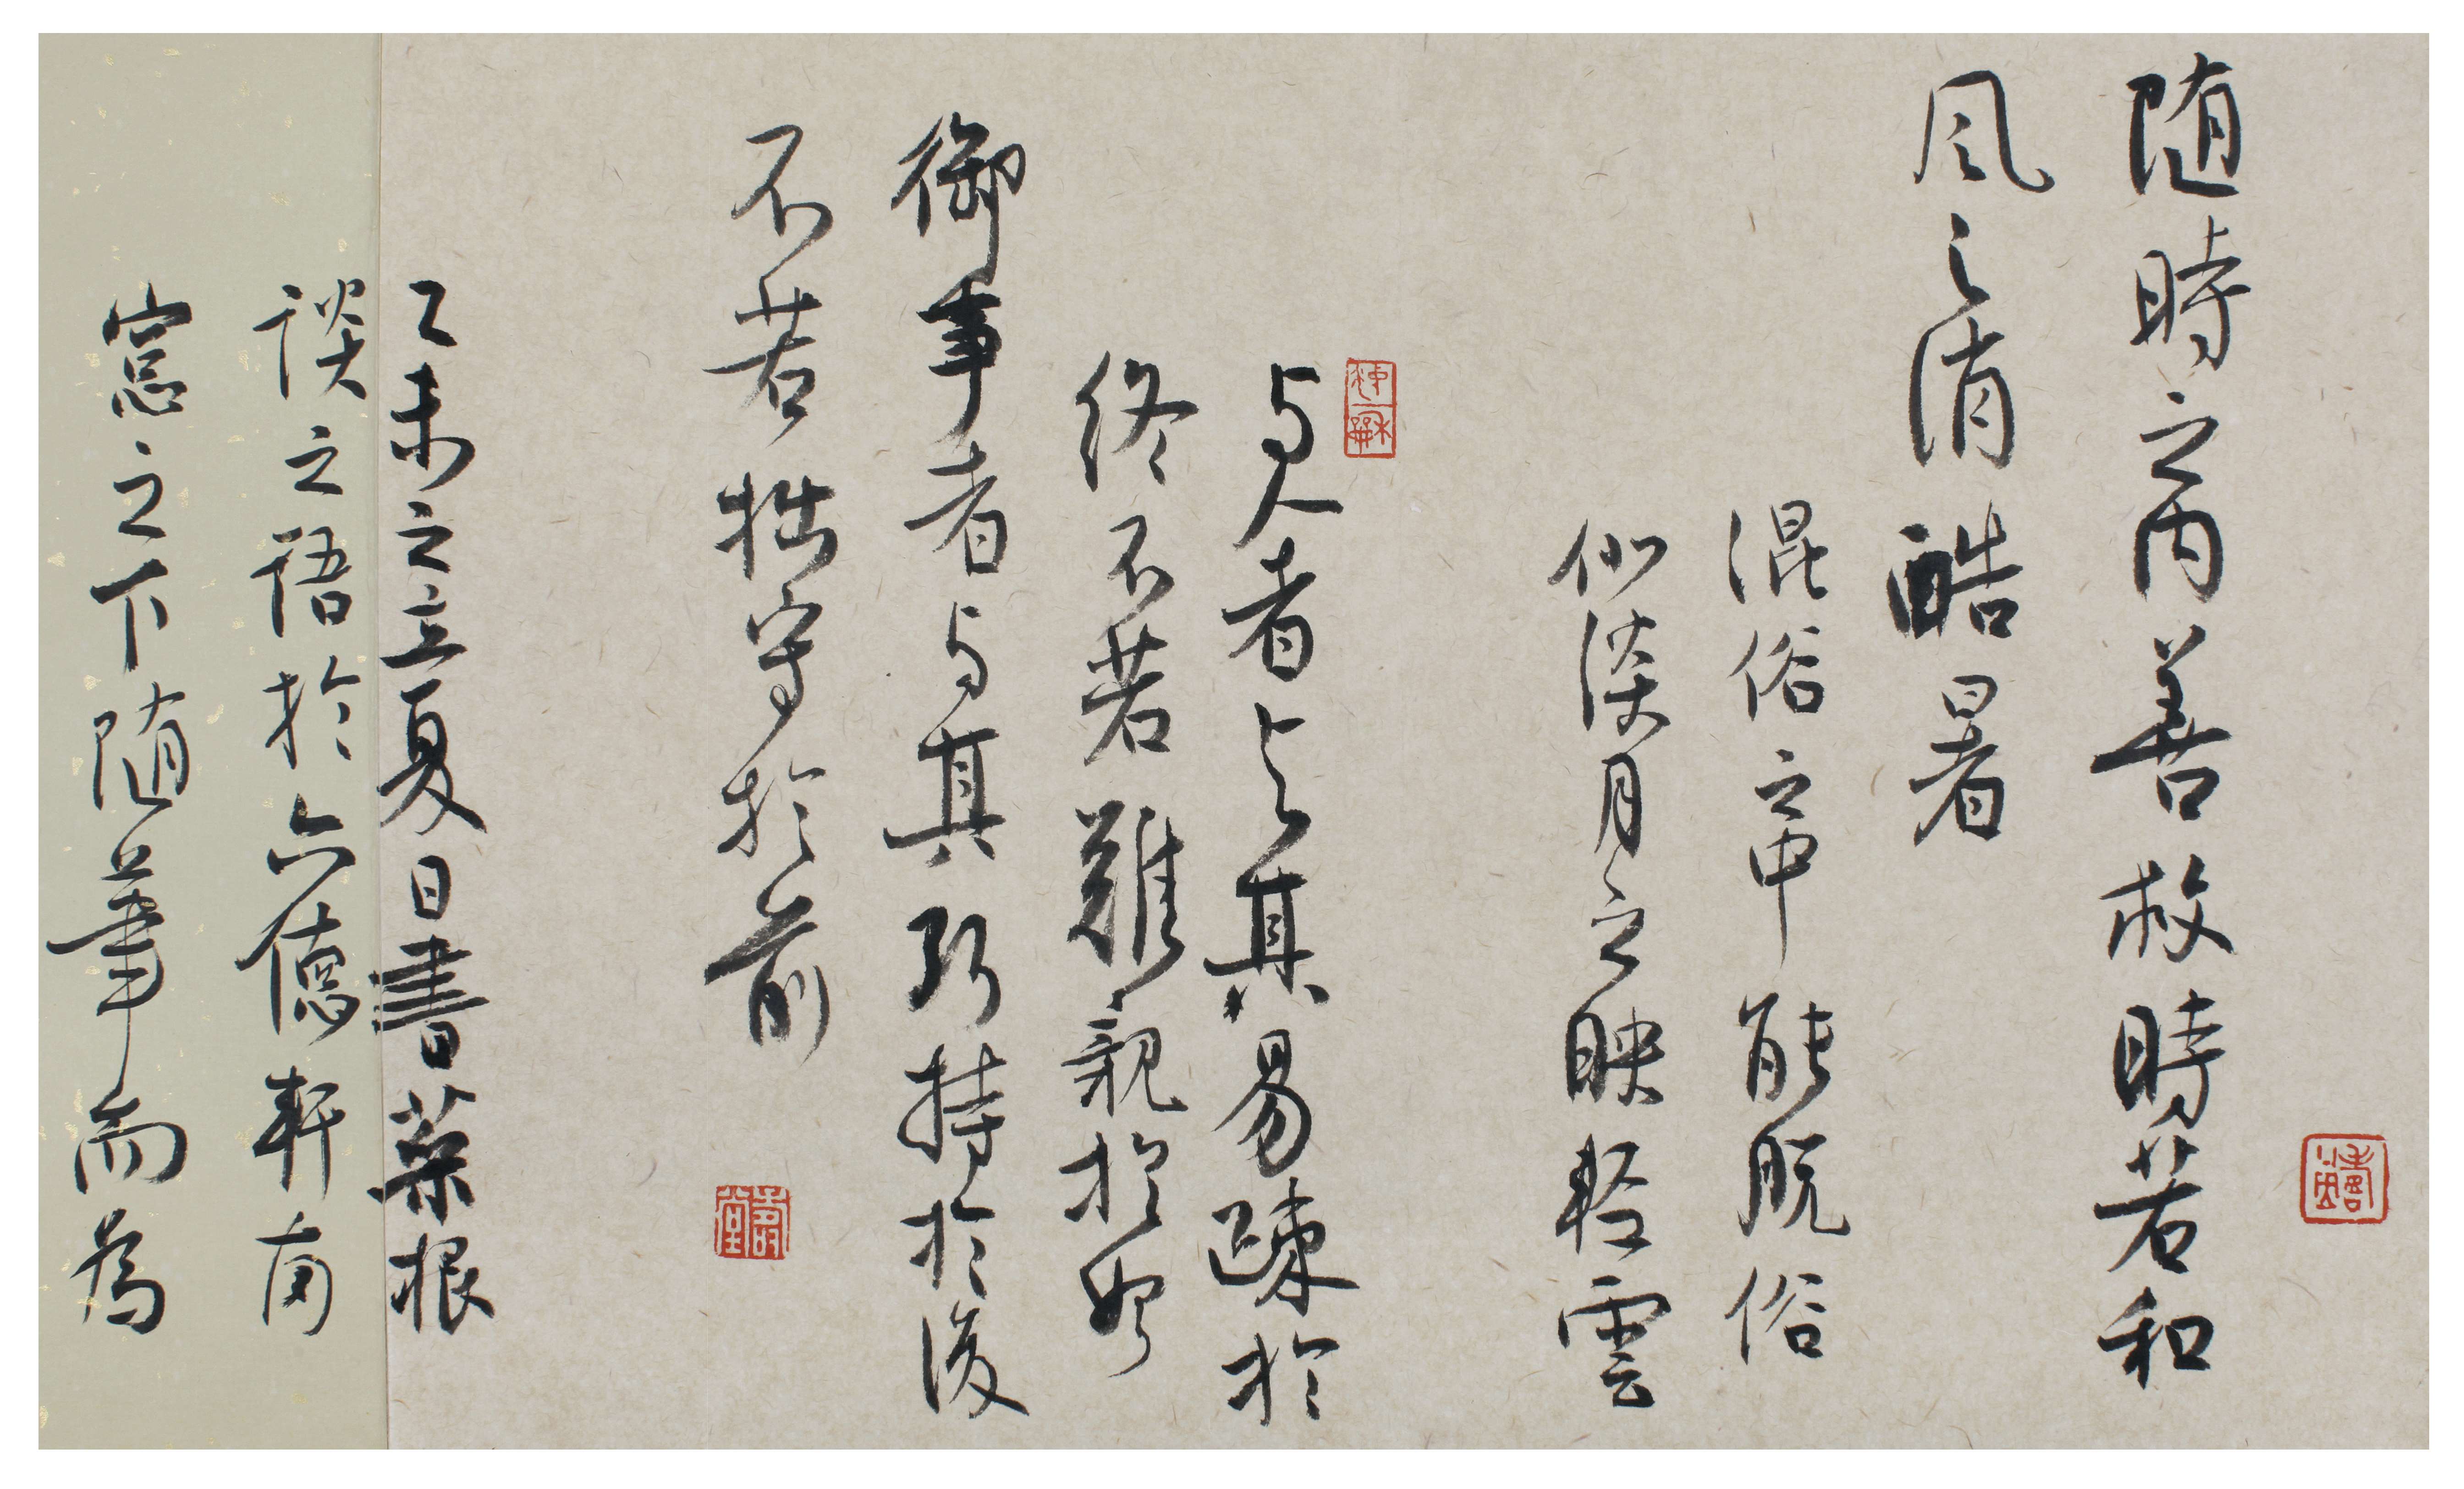 随時之内善救時若和
風之消酷暑
混俗之中能脱俗
似淡月之映輕雲
与人者与其易疎於
終不若難親於始
御事者与其巧持於後
不若拙守於前
乙未之立夏日書菜根
談之語於六德軒南
窓之下随筆而為